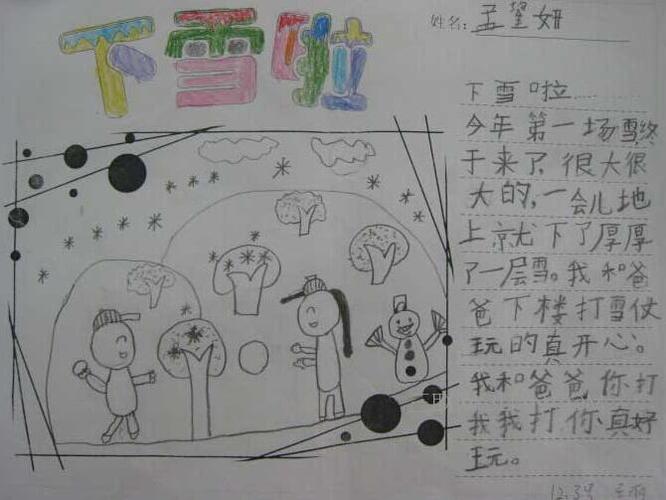 下雪啦
姓名：孟望妍
下雪啦
今年第一场雪终
于来了，很大很
大的，一会儿地
上就下了厚厚
了一层雪。我和爸
爸下楼打雪仗
玩的真开心。
我和爸爸，你打
我我打你真好
玩。